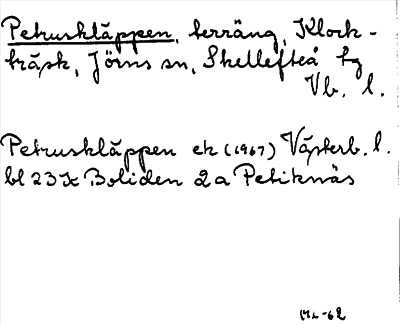 Petruskläppen, terräng, Klock-
träsk, Jörns sn, Skellefteå tg
Vb. l.
Petruskläppen ek (1967) Västerb. l.
bl 23 K Boliden 2 a Petiknäs